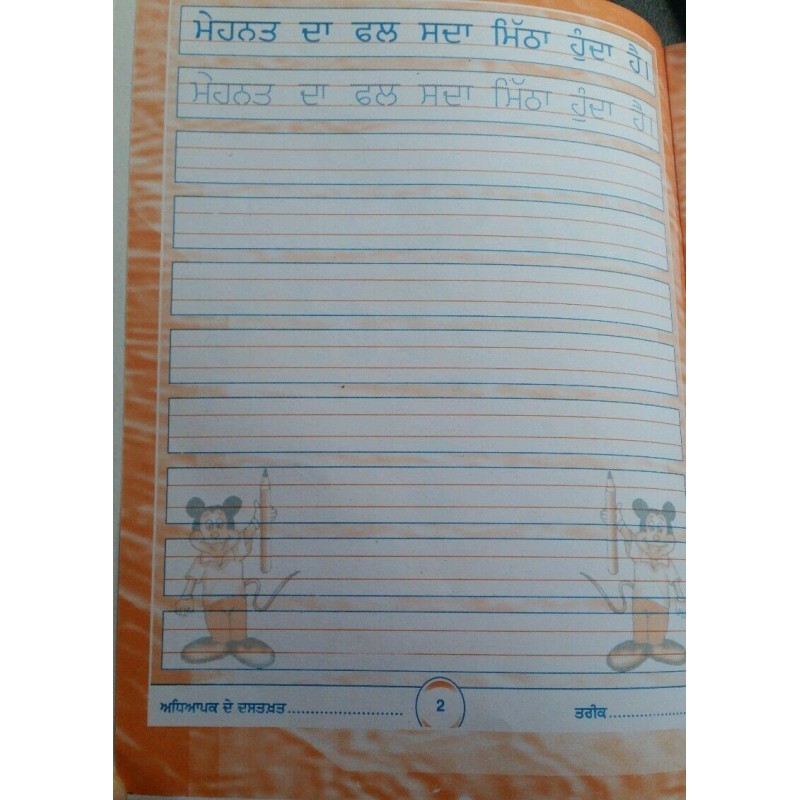 ਮੇਹਨਤ ਦਾ ਫਲ ਸਦਾ ਮਿੱਠਾ ਹੁੰਦਾ ਹੈ।
ਮੇਹਨਤ ਦਾ ਫਲ ਸਦਾ ਮਿੱਠਾ ਹੁੰਦਾ ਹੈ।
ਅਧਿਆਪਕ ਦੇ ਦਸਤਖ਼ਤ....................... 2 ਤਰੀਕ................